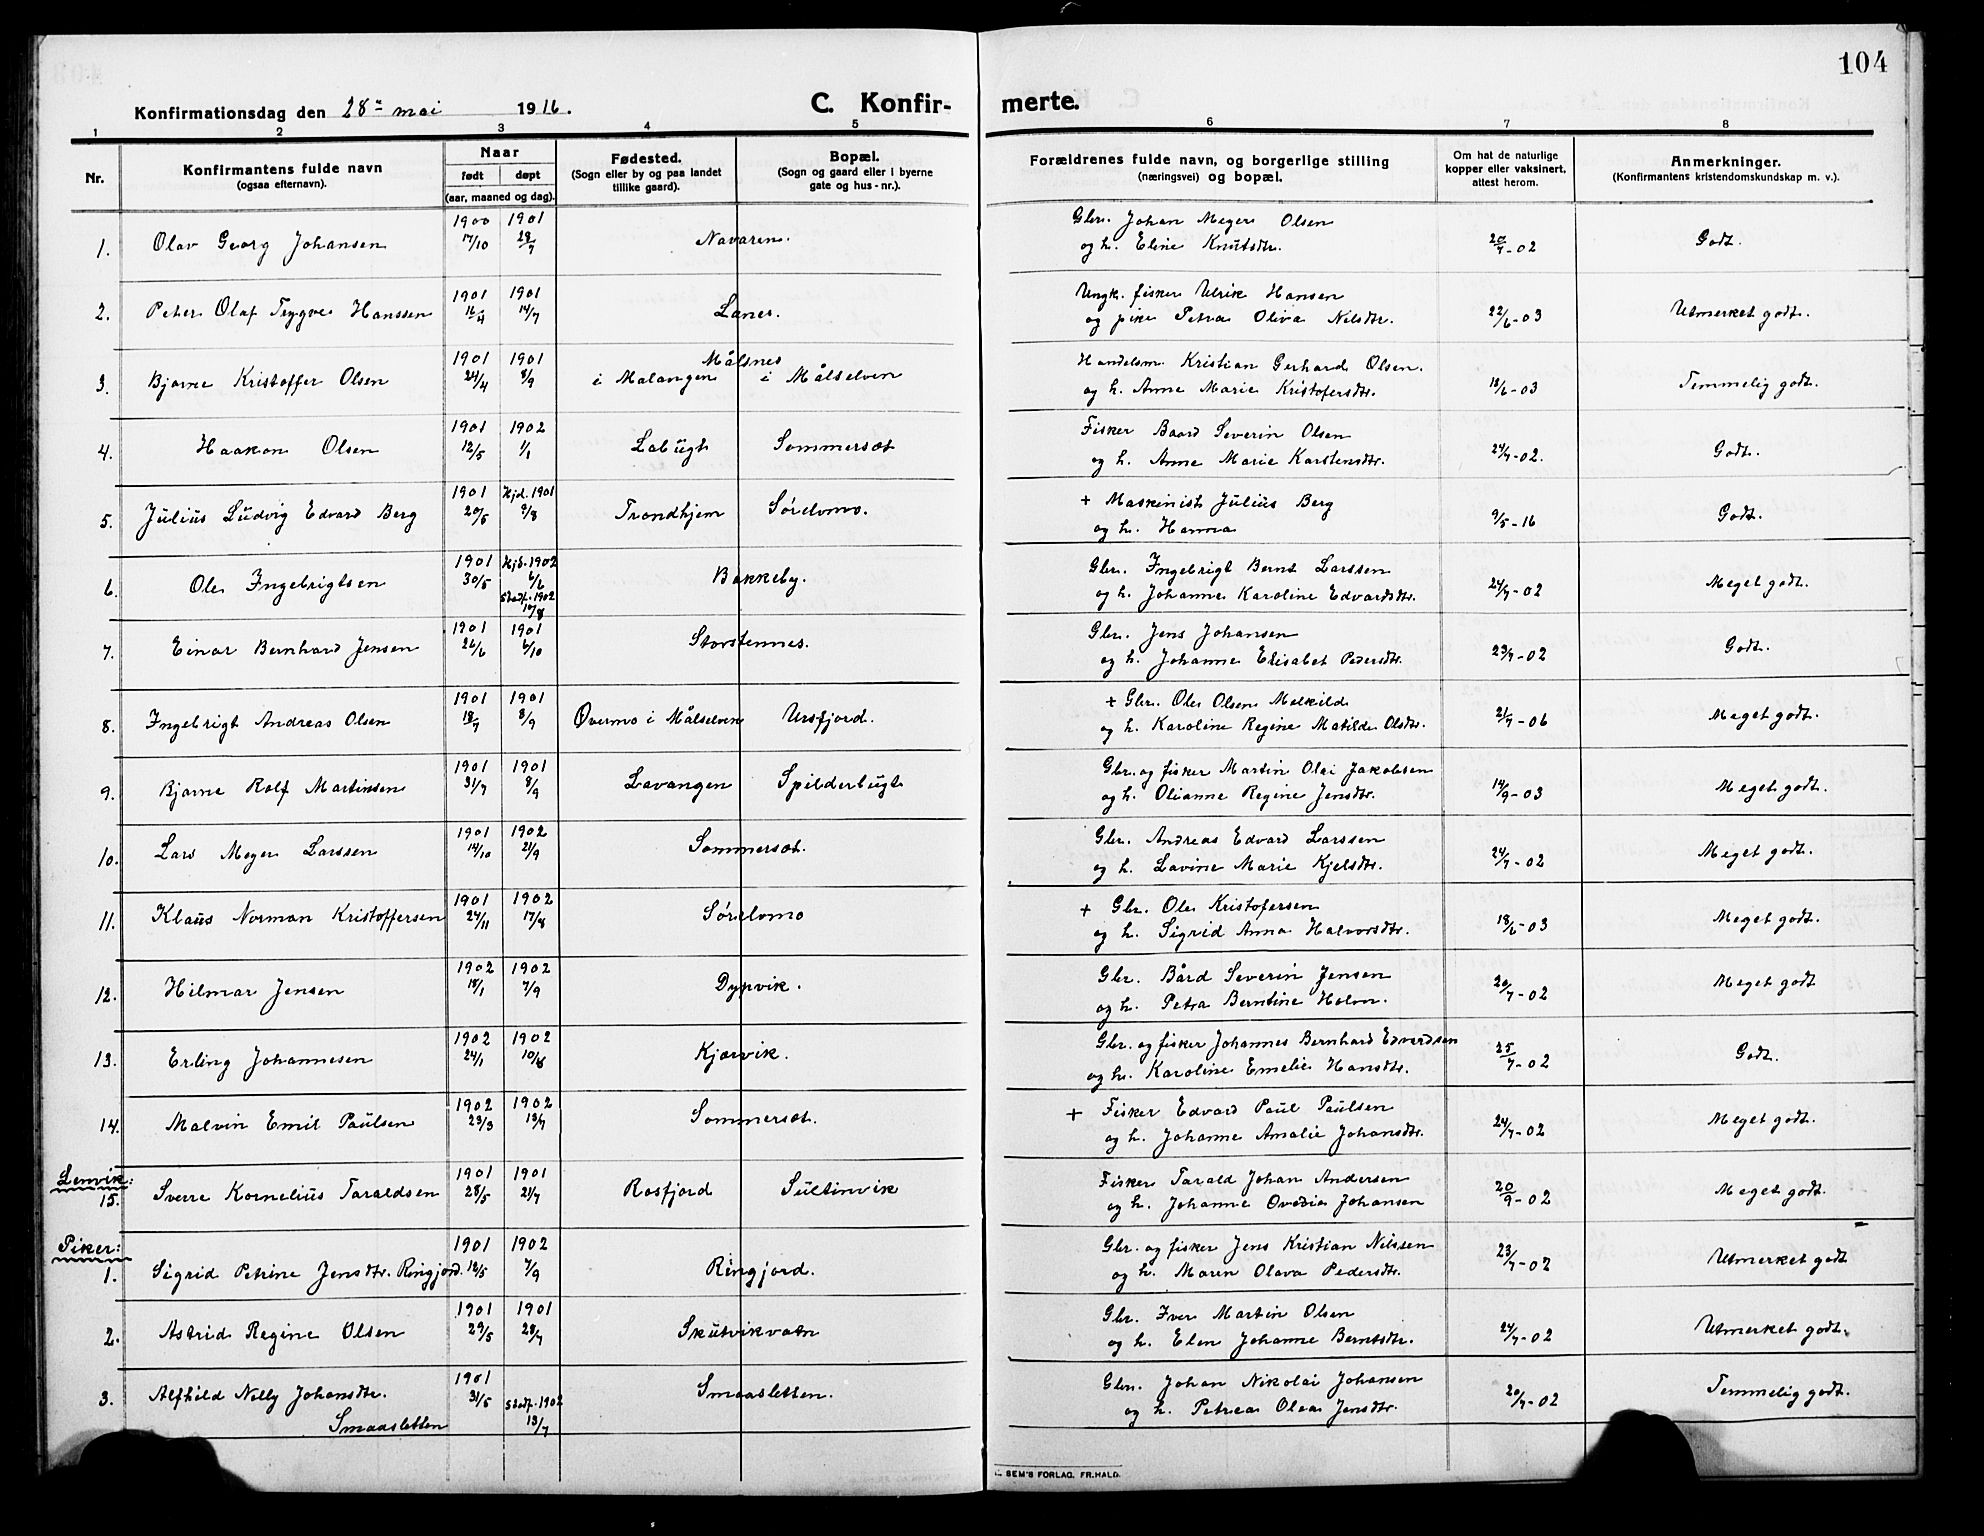 104
Konfirmationsdag den 28de mai 1916.
C. Konfirmerte.
1 2 3 4 5 6 7 8
Nr.
Konfirmantens fulde navn
(ogsaa efternavn).
Naar
født døpt
(aar, maaned og dag).
Fødested.
(Sogn eller by og paa landet
tillike gaard).
Bopæl.
(Sogn og gaard eller i byerne
gate og hus-nr.).
Forældrenes fulde navn, og borgerlige stilling
(næringsvei) og bopæl.
Om hat de naturlige
kopper eller vaksinert,
attest herom.
Anmerkninger.
(Konfirmantens kristendomskundskap m. v.).
1. Olav Georg Johansen 1900 17/10 1901 28/7 Navaren. Gbr. Johan Meyer Olsen
og h. Eline Knutsdtr. 20/7-02 Godt.
2. Peter Olaf Trygve Hanssen 1901 16/4 1901 14/7 Laner. Ungk. fisker Ulrik Hansen
og pike Petra Oliva Nilsdtr. 22/6-03 Utmerket godt.
3. Bjarne Kristoffer Olsen 1901 24/4 1901 8/9 Målsnes
i Malangen i Målselven Handelsm. Kristian Gerhard Olsen.
og h. Anne Marie Kristofersdtr. 18/6-03 Temmelig godt.
4. Haakon Olsen 1901 12/5 1902 1/1 Labugt Sommersæt Fisker Baard Severin Olsen
og h. Anne Marie Karstensdtr. 24/7-02. Godt.
5. Julius Ludvig Edvard Berg 1901 20/5 Hjd. 1901 9/8 Trondhjem Sørelvmo. + Maskinist Julius Berg
og h. Hanna 9/5-16 Godt.
6. Ole Ingebrigtsen 1901 30/5 Hjd. 1902 6/6
Stadf. 1902 17/8 Bakkeby. Gbr. Ingebrigt Bernt Larssen
og h. Johanne Karoline Edvardsdtr. 24/7-02 Meget godt.
7. Einar Bernhard Jensen 1901 26/6 1901 6/10 Storstennes. Gbr. Jens Johansen
og h. Johanne Elisabet Pedersdtr. 23/7-02 Godt.
8. Ingebrigt Andreas Olsen 1901 18/7 1901 8/9 Øvermo i Målselven Ursfjord. + Gbr. Ole Olsen Melkild
og h. Karoline Regine Matilde Olsdtr. 21/7-06 Meget godt.
9. Bjarne Rolf Martinsen 1901 31/7 1901 8/9 Lavangen Spilderbugt Gbr. og fisker Martin Olai Jakobsen
og h. Olianne Regine Jensdtr. 14/9-03 Meget godt.
10. Lars Meyer Larssen 1901 14/10 1902 21/9 Sommersæt. Gbr. Andreas Edvard Larssen
og h. Lavine Marie Kjelsdtr. 24/7-02 Meget godt.
11. Klaus Norman Kristoffersen 1901 24/11 1902 17/8 Sørelvmo + Gbr. Ole Kristofersen
og h. Sigrid Anna Halvorsdtr. 18/6-03 Meget godt.
12. Hilmar Jensen 1902 18/1 1902 7/9 Dypvik. Gbr. Bård Severin Jensen
og h. Petra Berntine Halvor. 20/7-02 Meget godt
13. Erling Johannesen 1902 24/1 1902 10/8 Kjarvik. Gbr. og fisker Johannes Bernhard Edvardsen
og h. Karoline Emelie Hansdtr. 25/7-02 Godt.
14. Malvin Emil Paulsen 1902 23/3 1902 13/7 Sommersæt. + Fisker Edvard Paul Paulsen
og h. Johanne Amalie Johansdtr. 24/7-02 Meget godt.
Lenvik:
15. Sverre Kornelius Taraldsen 1901 28/5 1901 21/7 Rosfjord Sultinvik Fisker Tarald Johan Andersen
og h. Johanne Ovedia Johansen 20/9-02 Meget godt.
Piker:
1. Sigrid Petrine Jensdtr. Ringjord. 1901 12/5 1902 7/9 Ringjord. Gbr. og fisker Jens Kristian Nilssen
og h. Maren Olava Pedersdtr. 23/7-02 Utmerket godt
2. Astrid Regine Olsen 1901 29/5 1901 28/7 Skutvikvatn Gbr. Iver Martin Olsen
og h. Elen Johanne Berntsdtr. 24/7-02 Utmerket godt.
3. Alfhild Nelly Johansdtr.
Smaasletten 1901 31/5 Stadf. 1902 13/7 Smaasletten. Gbr. Johan Nikolai Johansen
og h. Petrea Olea Jensdtr. 20/7-02 Temmelig godt.
SEM'S FORLAG, FR.HALD.